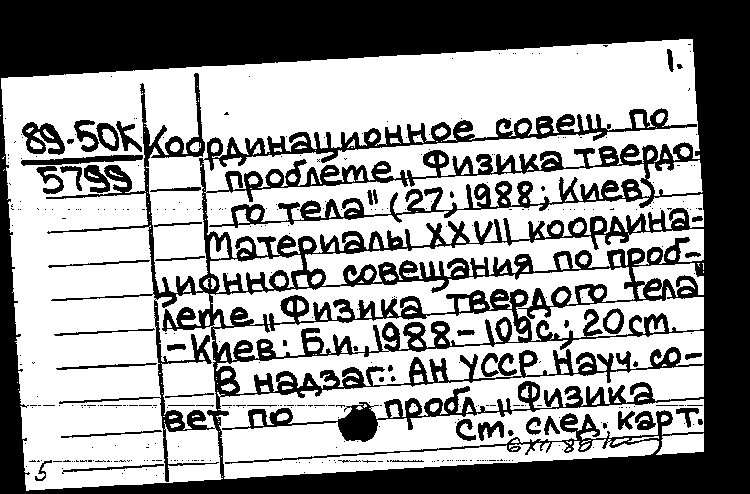 1.
89-50К Координационное совещ. по
5799 проблеме „Физика твердо-
го тела" (27; 1988; Киев).
Материалы XXVII координа-
цифнного совещания по проб-
леме „Физика твердого тела"
.-Киев: Б.и., 1988.- 109с.; 20см.
В надзаг.: АН УССР. Науч. со-
вет по пробл. „Физика
см. след. карт.
5